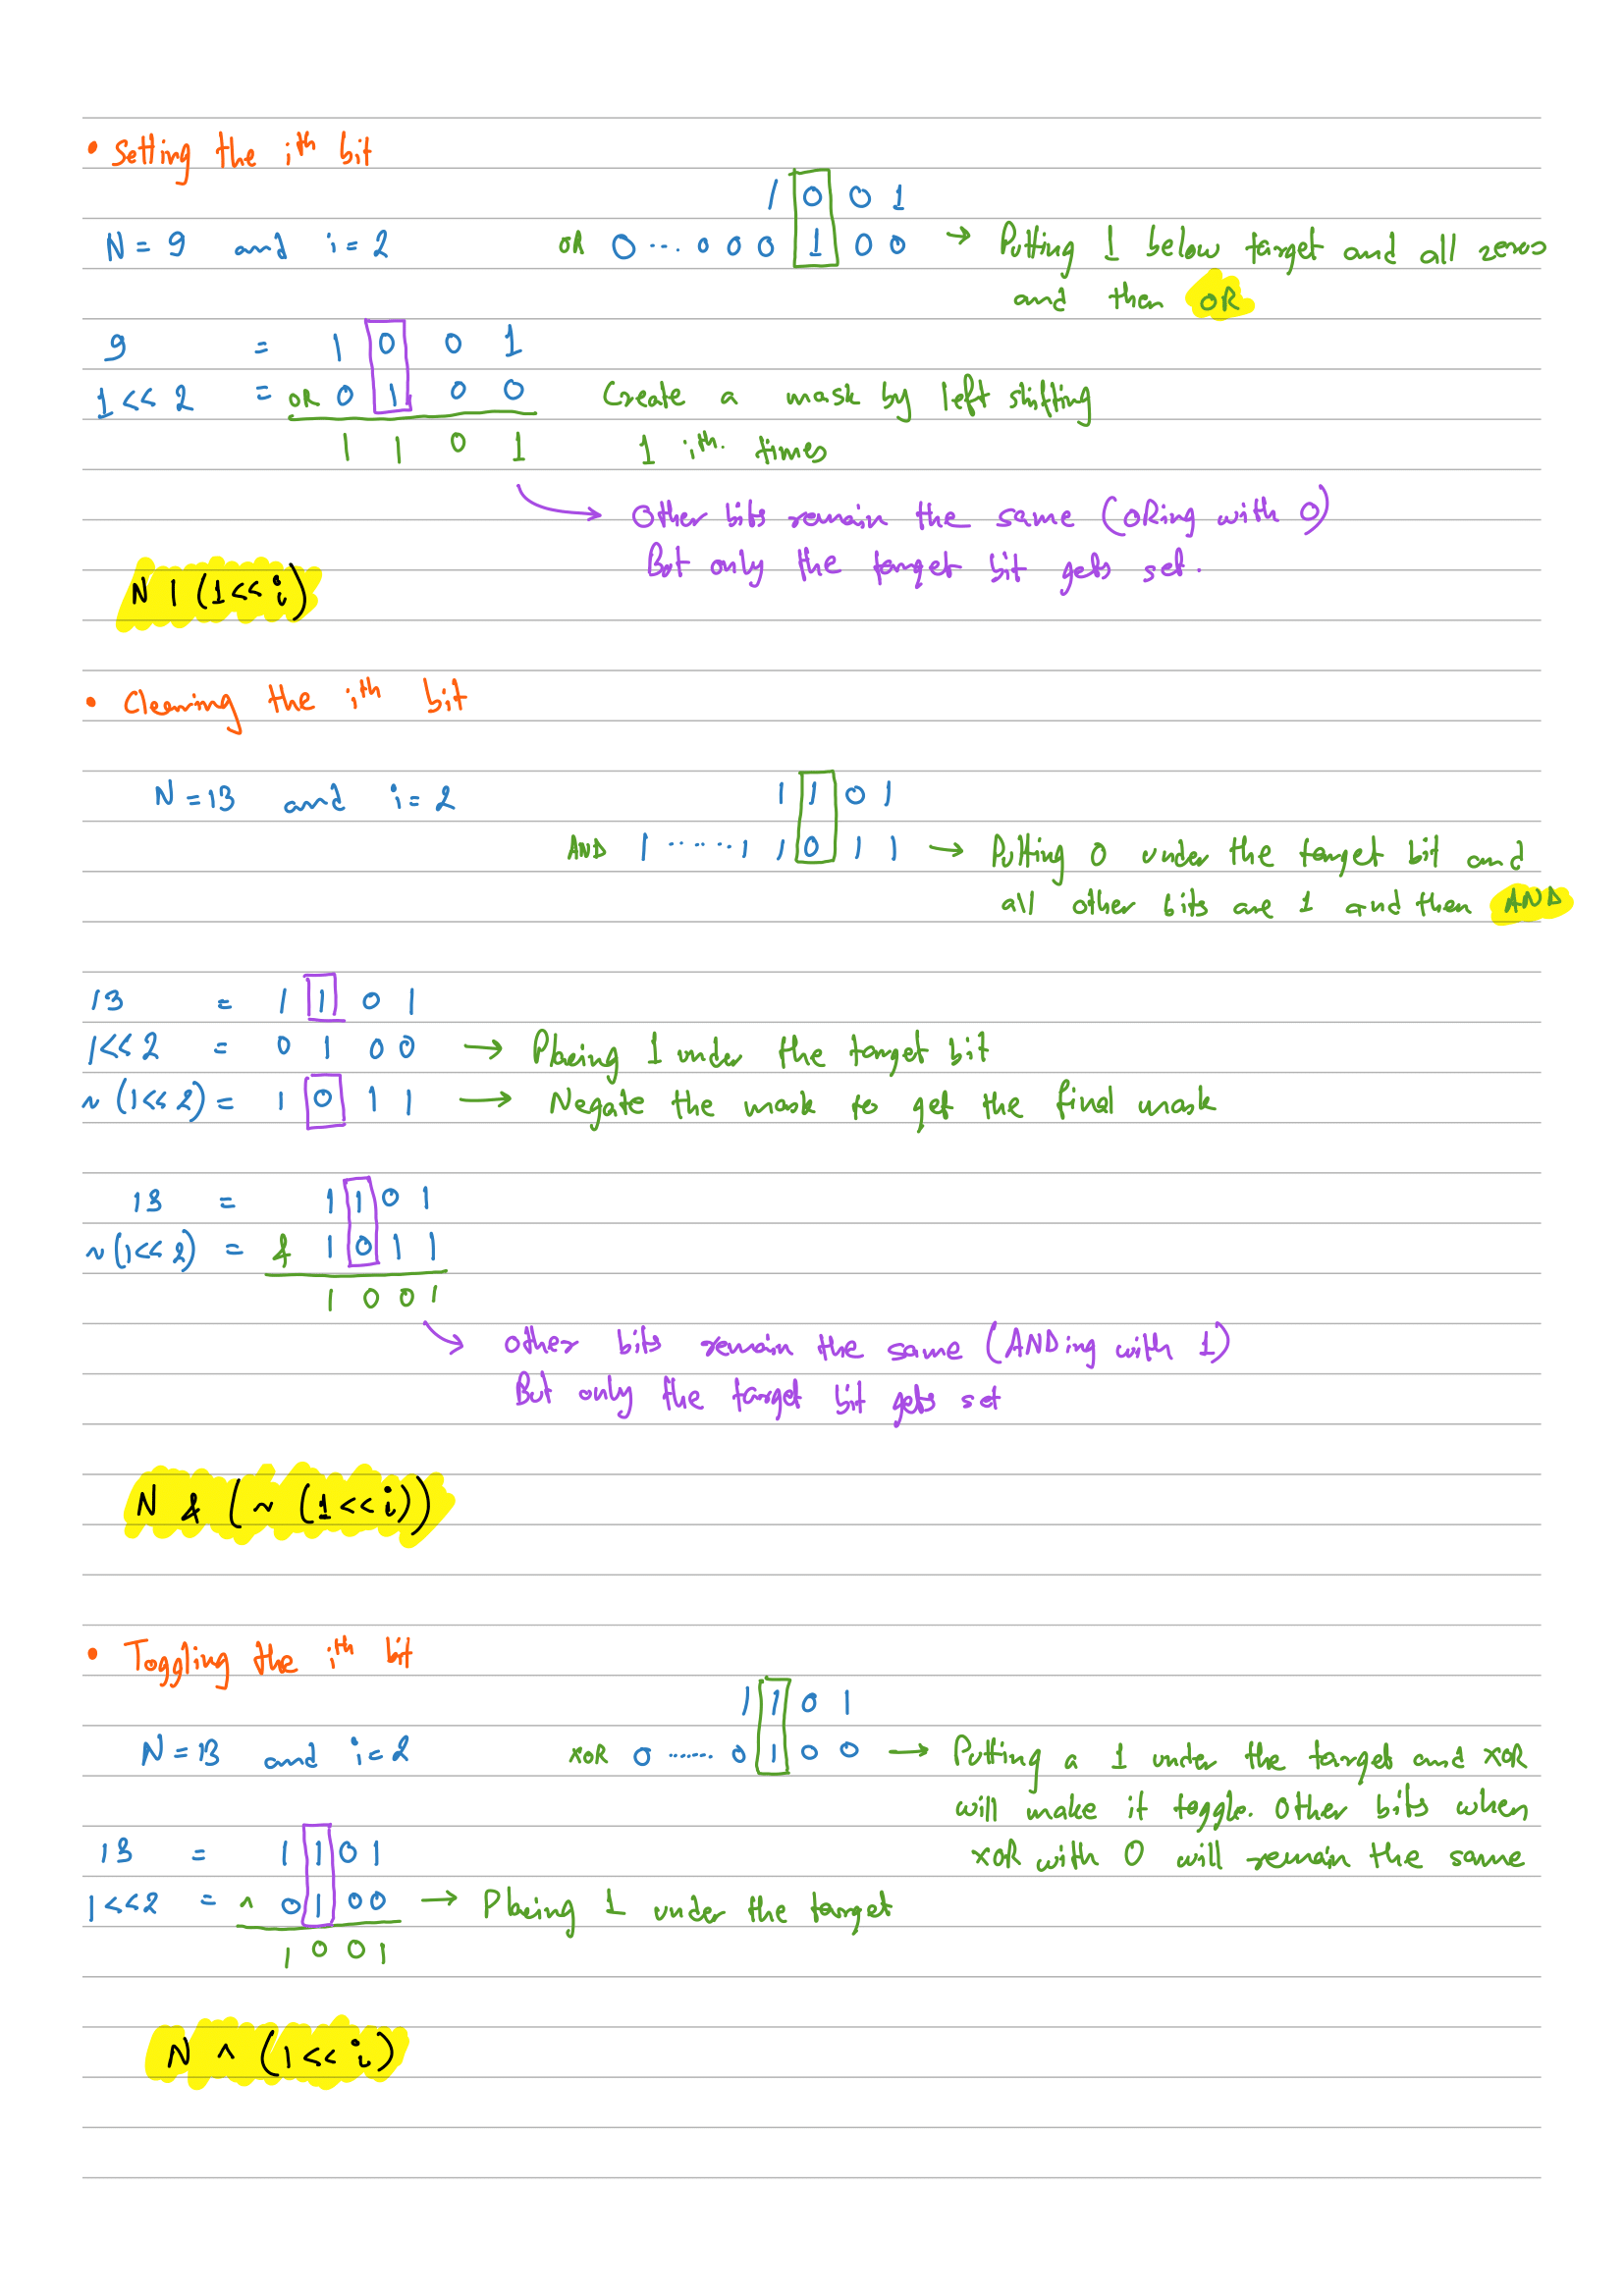 • Setting the ith bit
1 0 0 1
N = 9 and i = 2 OR 0 ... 0 0 0 1 0 0 → Putting 1 below target and all zeros
and then OR
9 = 1 0 0 1
1 << 2 = OR 0 1 0 0 Create a mask by left shifting
1 1 0 1 1 ith. times
Other bits remain the same (ORing with 0)
But only the target bit gets set.
N | (1<<i)
• Clearing the ith bit
N = 13 and i = 2 1 1 0 1
AND 1 ...... 1 1 0 1 1 → Putting 0 under the target bit and
all other bits are 1 and then AND
13 = 1 1 0 1
1<<2 = 0 1 0 0 → Placing 1 under the target bit
~ (1<<2) = 1 0 1 1 → Negate the mask to get the final mask
13 = 1 1 0 1
~ (1<<2) = & 1 0 1 1
1 0 0 1
Other bits remain the same (ANDing with 1)
But only the target bit gets set
N & (~ (1<<i))
• Toggling the ith bit
1 1 0 1
N = 13 and i = 2 XOR 0 ....... 0 1 0 0 → Putting a 1 under the target and XOR
will make it toggle. Other bits when
13 = 1 1 0 1 XOR with 0 will remain the same
1<<2 = ^ 0 1 0 0 → Placing 1 under the target
1 0 0 1
N ^ (1<<i)